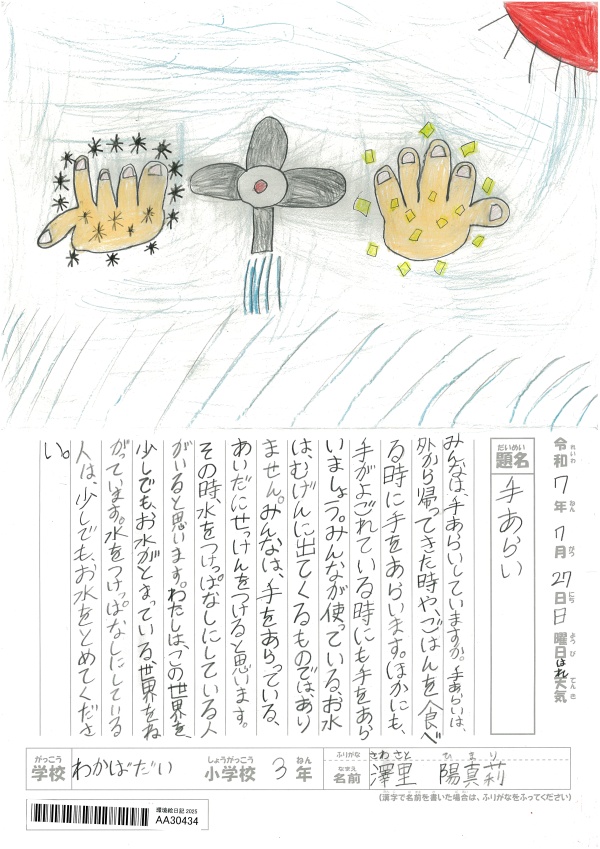 令和7年7月27日日曜日 天気はれ
れいわ ねん がつ にち ようび てんき
だいめい
題名 手あらい
みんなは、手あらいしていますか。手あらいは、
外から帰ってきた時や、ごはんを食べ
る時に手をあらいます。ほかにも、
手がよごれている時にも手をあら
いましょう。みんなが使っている、お水
は、むげんに出てくるものでは、あり
ません。みんなは、手をあらっている、
あいだにせっけんをつけると思います。
その時、水をつけっぱなしにしている人
がいると思います。わたしは、この世界を
少しでも、お水がとまっている、世界をね
がっています。水をつけっぱなしにしている
人は、少しでも、お水をとめてくださ
い。
がっこう しょうがっこう ねん
学校 わかばだい 小学校 3年
ふりがな さわさと ひまり
なまえ
名前 澤里 陽真莉
(漢字で名前を書いた場合は、ふりがなをふってください)
環境絵日記 2025
AA30434